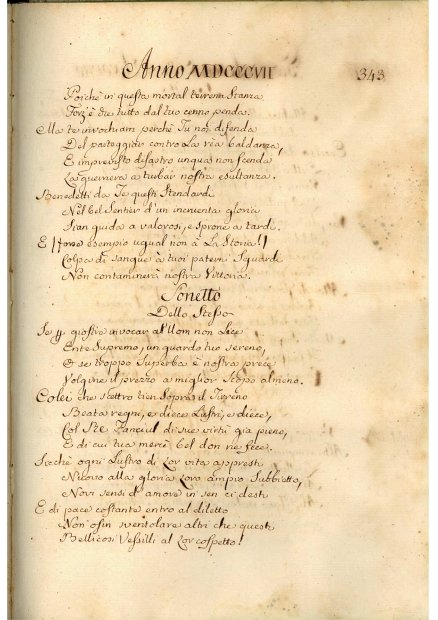 Anno MDCCCVII
343
Poichè in questa mortal terrena Stanza
Forz'è che tutto dal tuo cenno penda.
Ma te invochiam perchè Tu non difenda
Del parteggiar contro La rea baldanza,
E improvviso disastro unqua non scenda
La guerriera a turbar nostra esultanza.
Benedetti da Te questi Stendardi
Nel bel Sentier d'un incruenta gloria
Sian guida a valorosi, e sprone a tardi.
E esempio ugual non à La Storia!
Colpa di Sangue à tuoi paterni Sguardi
Non contaminerà nostra Vittoria.
Sonetto
Dello Stesso
Se giostre invocar all'Uom non Lice
Ente Supremo, un guardo tuo sereno,
E se troppo Superba è nostra prece
Volgine il prezzo a miglior Scopo almeno.
Colei che scettro tien Sopra il Tirreno
Beata regni, e diece Lustri, e diece,
Col Rè Fanciul di sue virtù già pieno,
E di cui tua mercè bel don ne fece.
Sicchè ogni Lustro di Lor vita appresti
Nuovo alla gloria Loro ampio Subbietto,
Novi sensi d'amore in sen ci desti
E di pace costante entro al diletto
Non osin sventolare altri che questi
Bellicosi Vessilli al Lor cospetto!